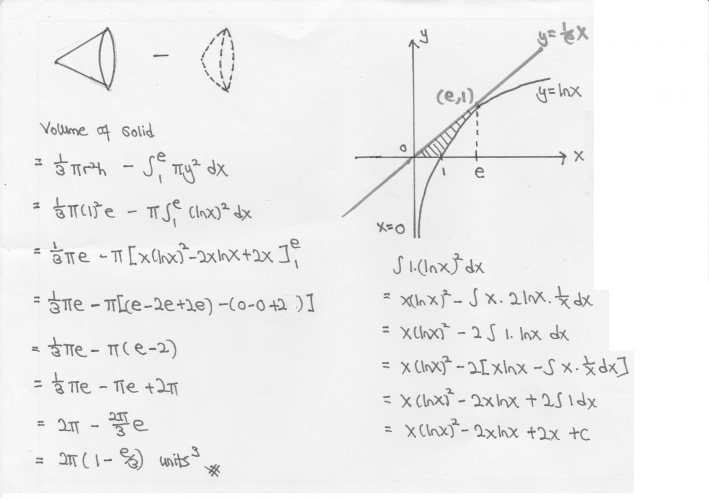 Volume of solid
= 1/3 πr²h - ∫₁ᵉ πy² dx
= 1/3 π(1)²e - π∫₁ᵉ (lnx)² dx
= 1/3 πe - π[x(lnx)²-2xlnx+2x]₁ᵉ
= 1/3 πe - π[(e-2e+2e) - (0-0+2)]
= 1/3 πe - π(e-2)
= 1/3 πe - πe + 2π
= 2π - 2π/3 e
= 2π(1 - e/3) units³
y
y = 1/e x
(e,1)
y=lnx
0
1
e
x
x=0
∫1.(lnx)² dx
= x(lnx)² - ∫x. 2lnx. 1/x dx
= x(lnx)² - 2∫1. lnx dx
= x(lnx)² - 2[xlnx - ∫x. 1/x dx]
= x(lnx)² - 2xlnx + 2∫1dx
= x(lnx)² - 2xlnx + 2x + c